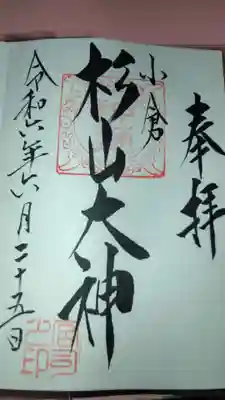 奉拝
小倉
杉山大神
令和六年六月二十五日